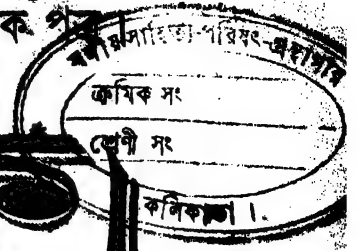 ক পত্র।
বঙ্গীয়-সাহিত্য-পরিষৎ-গ্রন্থাগার
ক্রমিক সং
শ্রেণী সং
কলিকাতা।